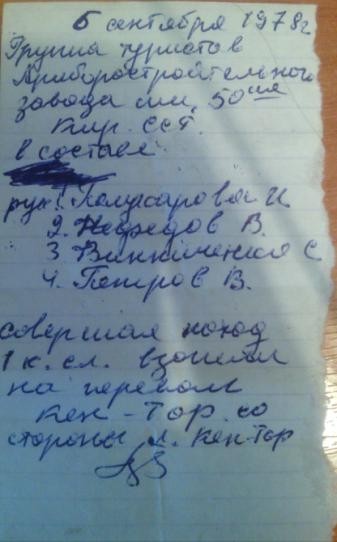 5 сентября 1978г
Группа туристов
Приборостроительного
завода им. 50-ия
Кир. ССР.
в составе
рук. 1. Гончарова И.
2. Нефедов В.
3. Винниченко С.
4. Петров В.
совершая поход
1 к. сл. взошли
на перевал
Кен-Тор со
стороны л. Кен-Тор